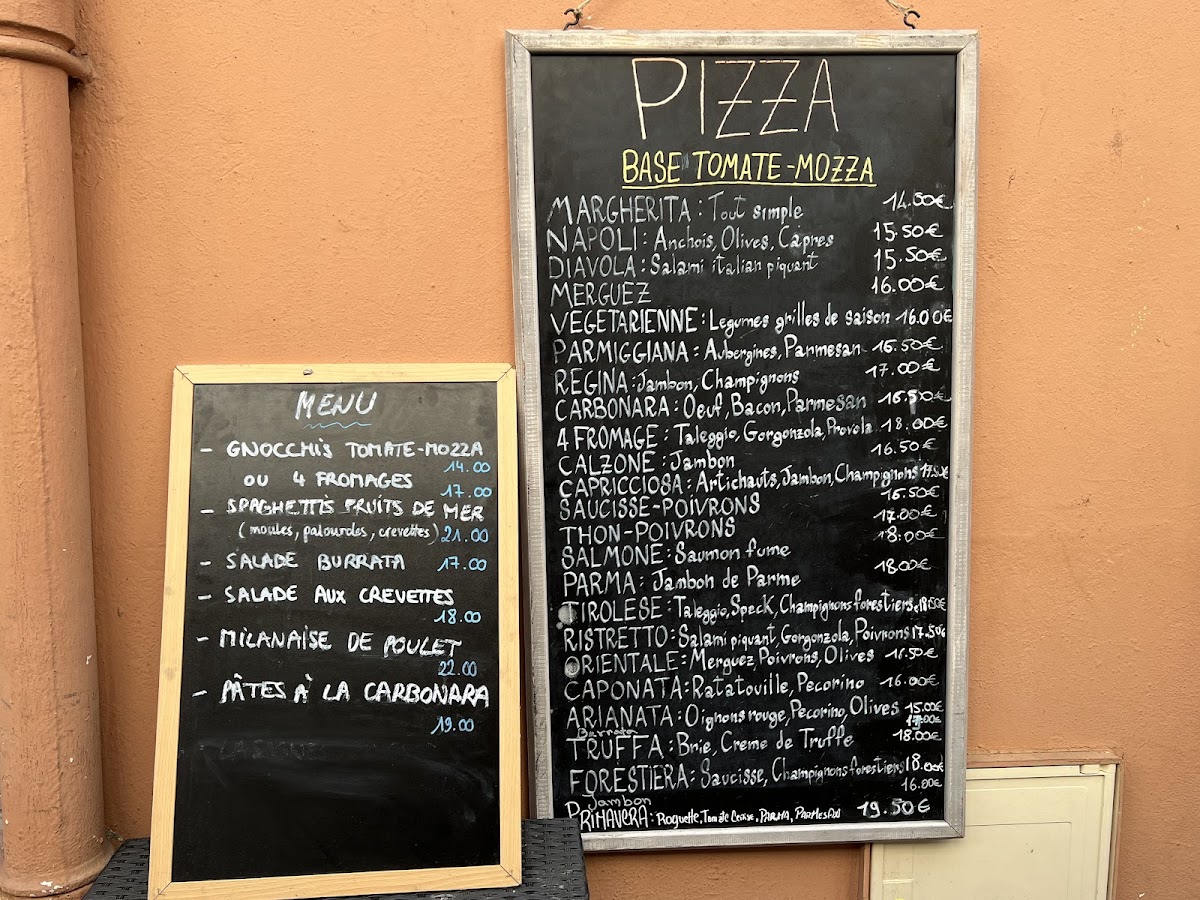 MENU
- GNOCCHIS TOMATE-MOZZA
14.00
OU 4 FROMAGES
17.00
- SPAGHETTIS FRUITS DE MER
(moules, palourdes, crevettes) 21.00
- SALADE BURRATA 17.00
- SALADE AUX CREVETTES
18.00
- MILANAISE DE POULET
22.00
- PÂTES À LA CARBONARA
19.00
PIZZA
BASE TOMATE-MOZZA
MARGHERITA: Tout simple 14.50€
NAPOLI: Anchois, Olives, Capres 15.50€
DIAVOLA: Salami italian piquant 15.50€
MERGUEZ 16.00€
VEGETARIENNE: Legumes grilles de saison 16.00€
PARMIGGIANA: Aubergines, Parmesan 16.50€
REGINA: Jambon, Champignons 17.00€
CARBONARA: Oeuf, Bacon, Parmesan 16.50€
4 FROMAGE: Taleggio, Gorgonzola, Provola 18.00€
CALZONE: Jambon 16.50€
CAPRICCIOSA: Artichauts, Jambon, Champignons 17.50€
SAUCISSE-POIVRONS 16.50€
THON-POIVRONS 17.00€
SALMONE: Saumon fume 18.00€
PARMA: Jambon de Parme 18.00€
TIROLESE: Taleggio, Speck, Champignons forestiers 18.50€
RISTRETTO: Salami piquant, Gorgonzola, Poivrons 17.50€
ORIENTALE: Merguez, Poivrons, Olives 16.50€
CAPONATA: Ratatouille, Pecorino 16.00€
ARIANATA: Oignons rouge, Pecorino, Olives 15.00€
Burrata 17.00€
TRUFFA: Brie, Creme de Truffe 18.00€
FORESTIERA: Saucisse, Champignons forestiers 18.00€
Jambon 16.00€
PRIMAVERA: Roquette, Tomate Cerise, PARMA, PARMESAN 19.50€